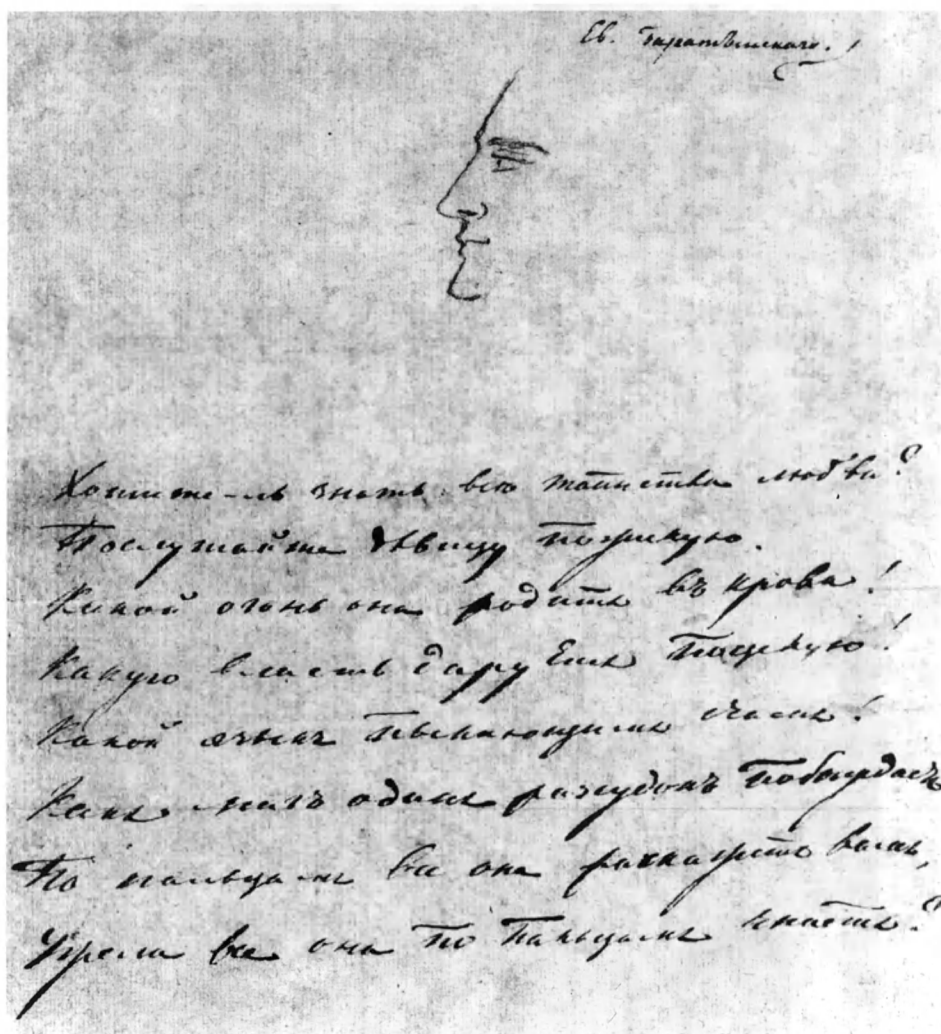 Ев. Баратынскаго.
Хотите-ль знать все таинства любви?
Послушайте дѣвицу пожилую.
Какой огонь она родитъ въ крови!
Какую власть даруетъ поцѣлую!
Какой языкъ пылающимъ очамъ!
Какъ мигъ одинъ разсудокъ побѣждаетъ
По пальцамъ все она разскажетъ вамъ,
все она по пальцамъ знаетъ?